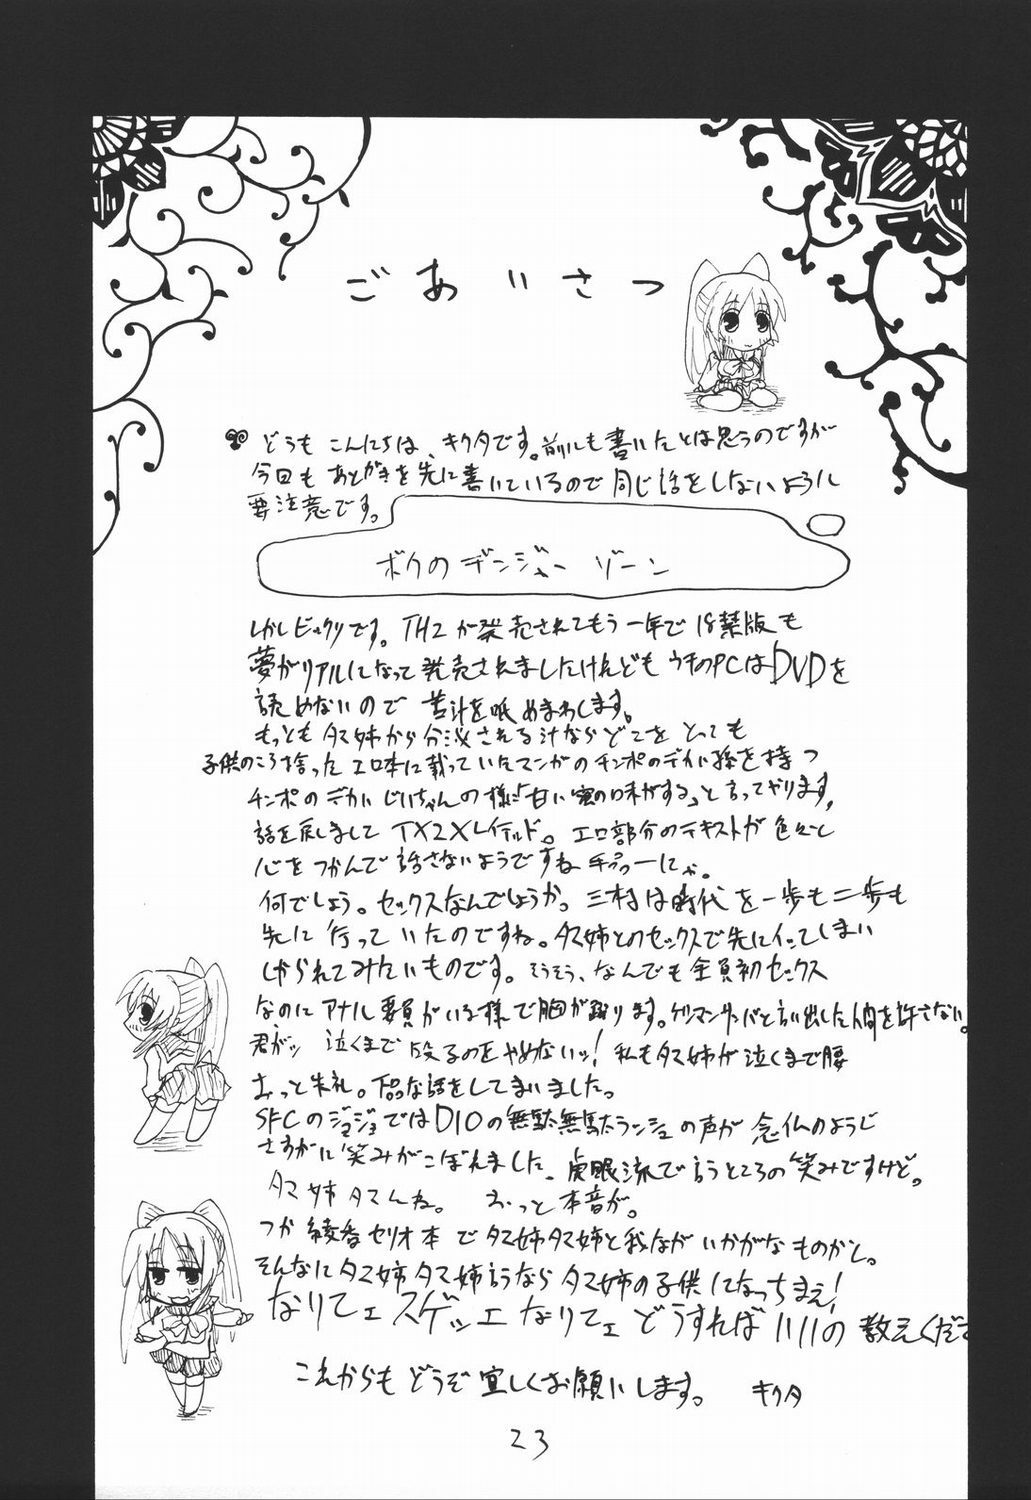 ごあいさつ
どうも こんにちは、キクタです。前にも書いたとは思うのですが
今回も あとがきを先に書いているので同じ話をしないように
要注意です。
ボクのデンジャー ゾーン
しかしビックリです。TH2が発売されてもう一年で18禁版も
夢がリアルになって発売されましたけれども うちのPCはDVDを
読めないので 苦汁を舐めまわします。
もっとも タマ姉から分泌される汁ならどこをとっても
子供のころ拾ったエロ本に載っていたマンガのチンポのデカい孫を持つ
チンポのデカいじいちゃんの様に「甘い蜜の味がする」と言ってやります。
話を戻しまして TX2Xレイテッド。エロ部分のテキストが色々と
心をつかんで話さないようですね
何でしょう。セックスなんでしょうか。三村は時代を一歩も二歩も
先に行っていたのですね。タマ姉とのセックスで先にイってしまい
しかられてみたいものです。そうそう、なんでも全員初セックス
なのにアナル要員がいる様で胸が踊ります。と言い出した人間を許さない。
君がッ 泣くまで 殴るのをやめないッ!私もタマ姉が泣くまで腰
おっと失礼。下品な話をしてしまいました。
SFCのジョジョではDIOの無駄無駄ランシュの声が 念仏のようで
さすがに笑みがこぼれました。虎眼流で言うところの笑みですけど。
タマ姉タマんね。 おっと本音が。
つか 綾香セリオ本でタマ姉タマ姉と我ながらいかがなものかと。
そんなにタマ姉タマ姉言うならタマ姉の子供になっちまえ!
なりてェ スゲッェ なりてェ どうすればいいの 教えくださ
これからもどうぞ宜しくお願いします。 キクタ
23